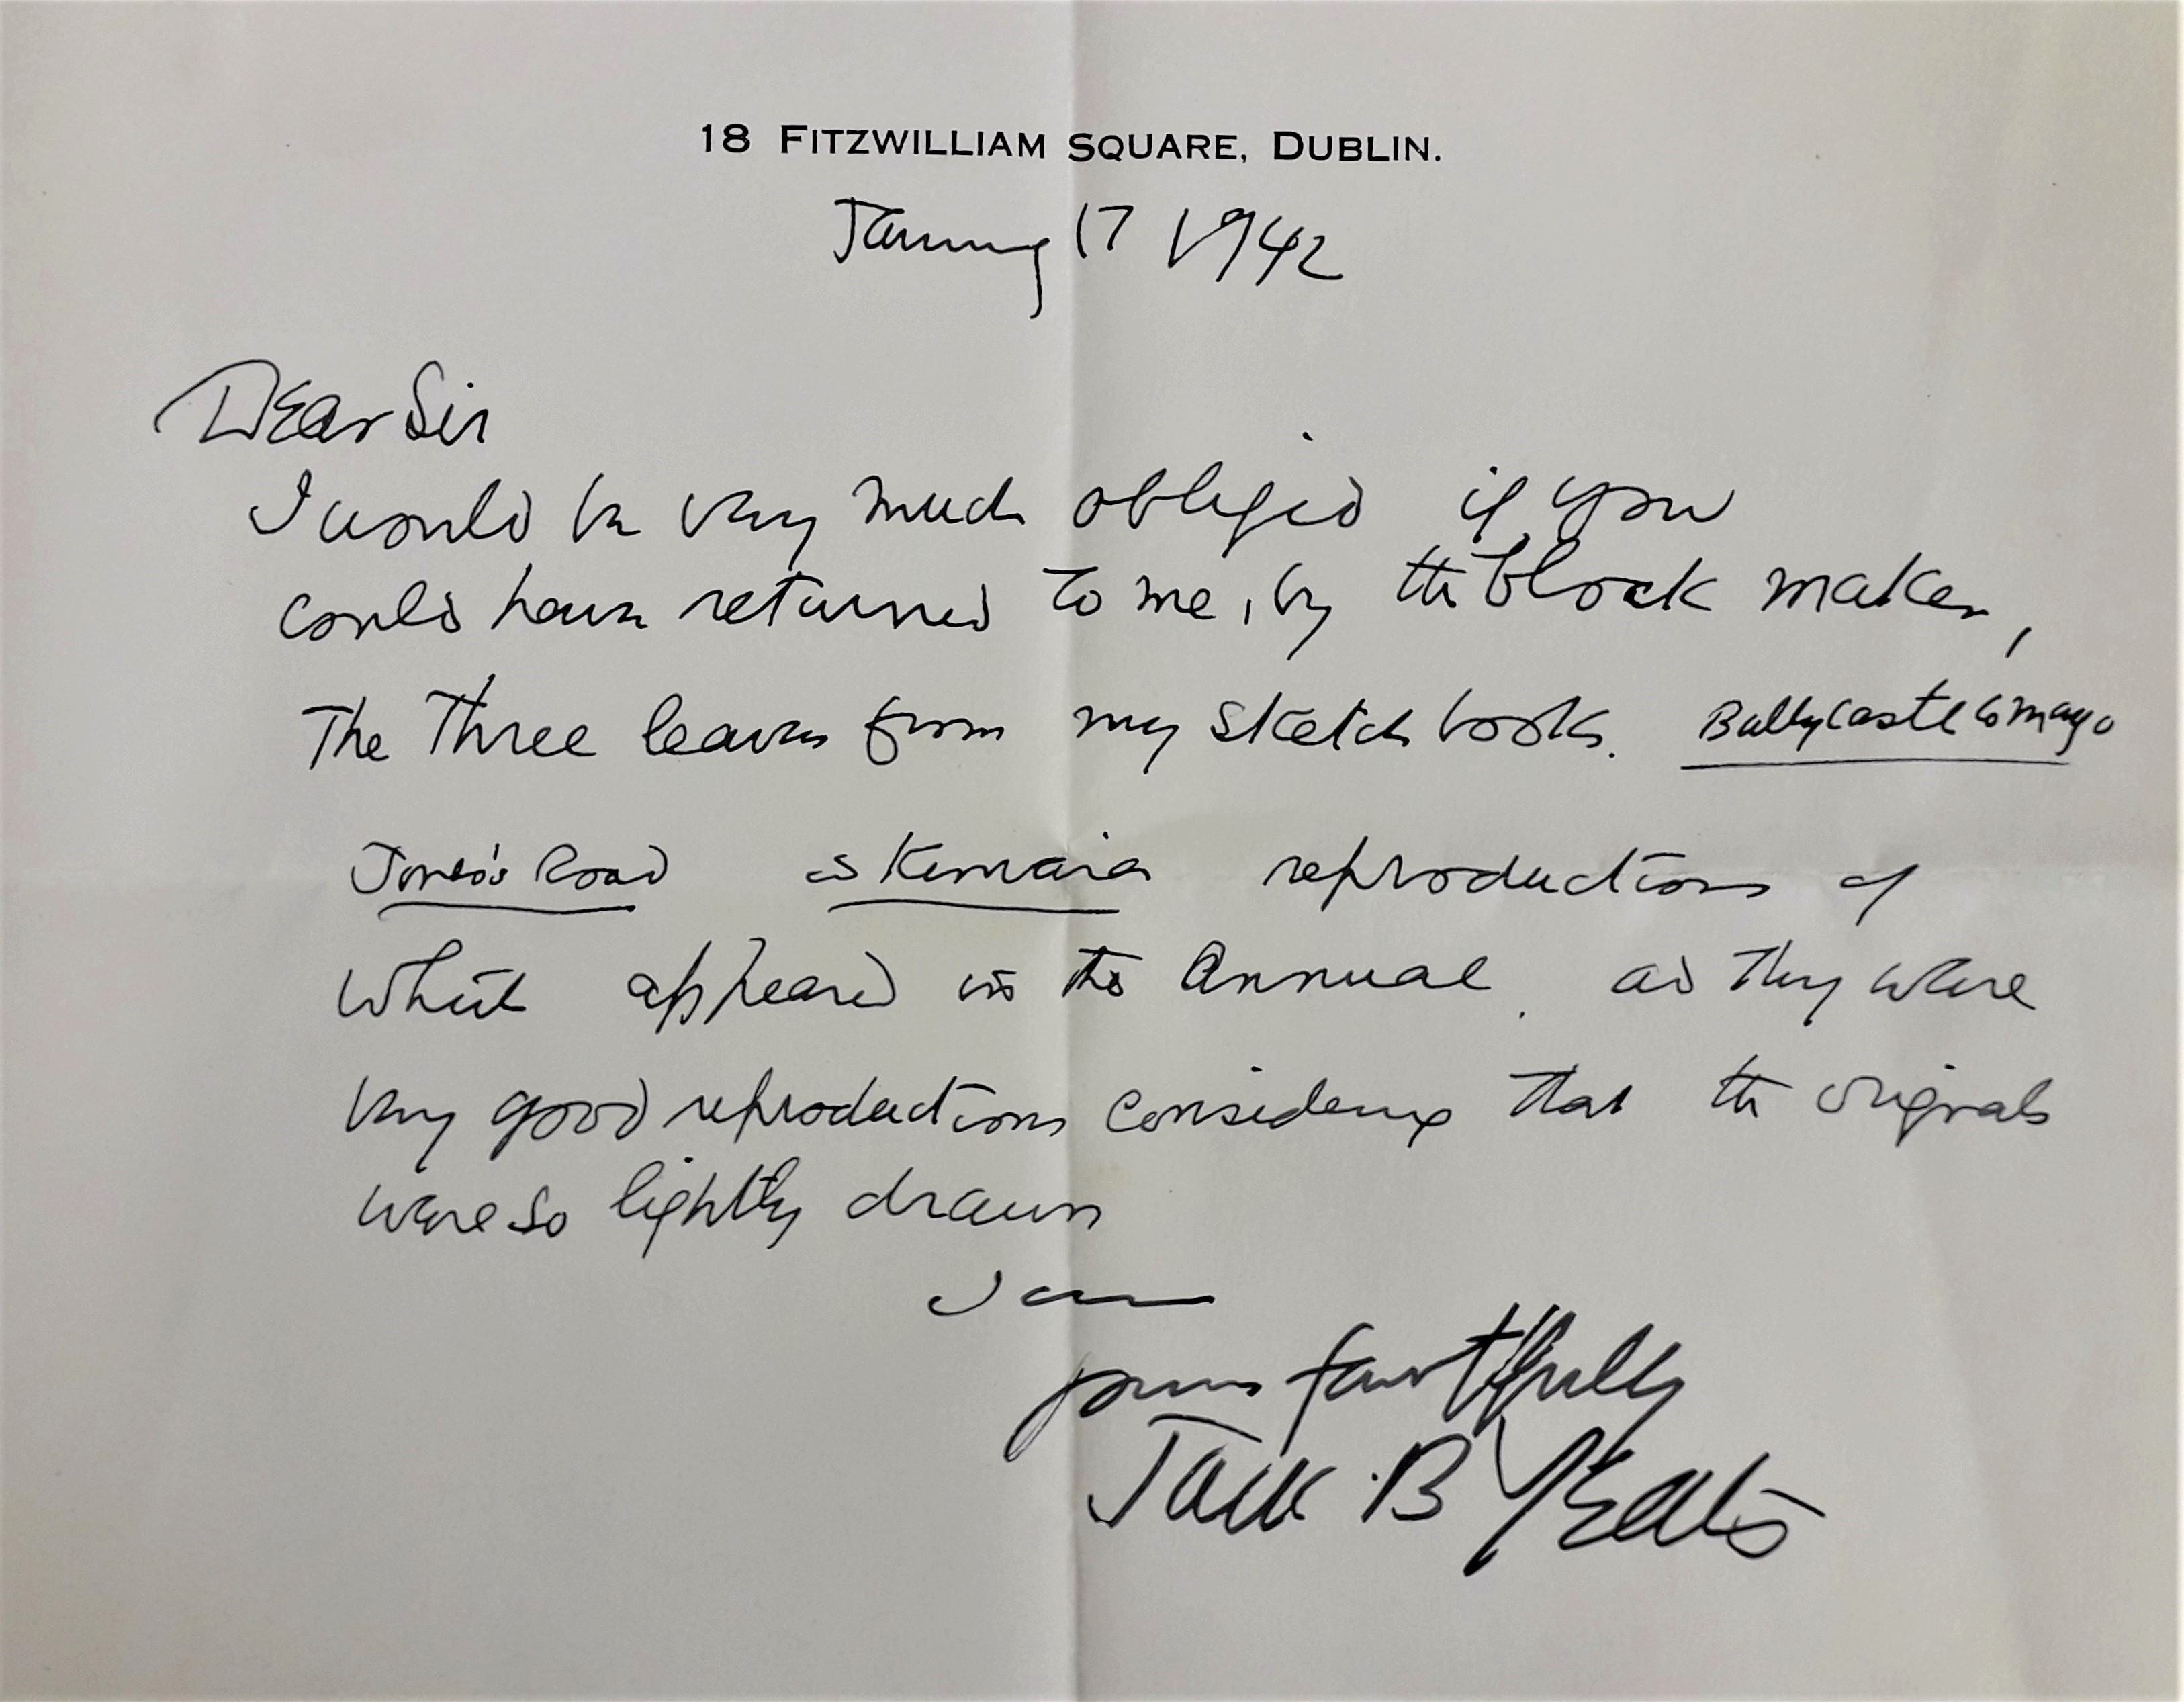 18 FITZWILLIAM SQUARE, DUBLIN.
January 17 1942
Dear Sir
I would be very much obliged if you
could have returned to me, by the block maker,
The Three leaves from my sketch books. Ballycastle Co Mayo
Jones's Road & Kenmare reproductions of
which appeared in the Annual. and They were
very good reproductions considering that the originals
were so lightly drawn
I am
yours faithfully
Jack B Yeats